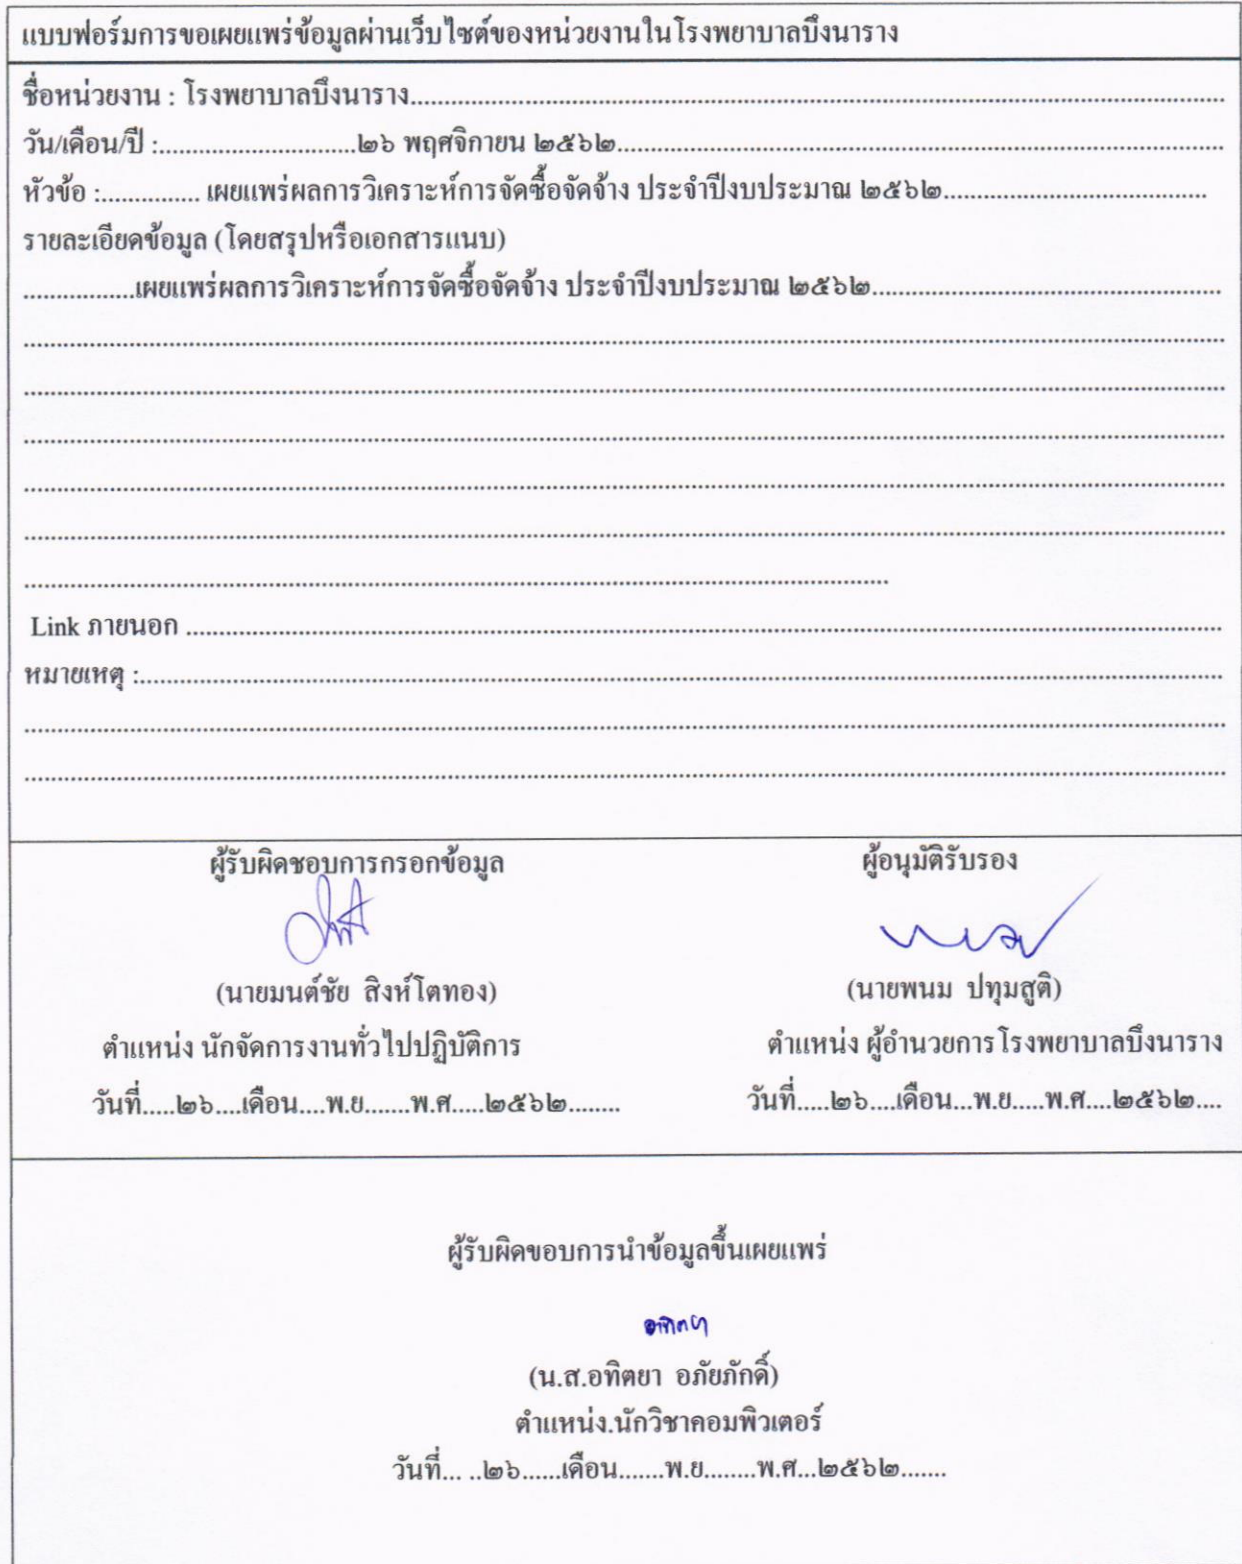 แบบฟอร์มการขอเผยแพร่ข้อมูลผ่านเว็บไซต์ของหน่วยงานในโรงพยาบาลบึงนาราง
ชื่อหน่วยงาน : โรงพยาบาลบึงนาราง..........................................................................
วัน/เดือน/ปี :..............................๒๖ พฤศจิกายน ๒๕๖๒..........................................................................
หัวข้อ :............... เผยแพร่ผลการวิเคราะห์การจัดซื้อจัดจ้าง ประจำปีงบประมาณ ๒๕๖๒........................................
รายละเอียดข้อมูล (โดยสรุปหรือเอกสารแนบ)
.................เผยแพร่ผลการวิเคราะห์การจัดซื้อจัดจ้าง ประจำปีงบประมาณ ๒๕๖๒.....................................................
Link ภายนอก ..........................................................................
หมายเหตุ :..........................................................................
ผู้รับผิดชอบการกรอกข้อมูล
(นายมนต์ชัย สิงห์โตทอง)
ตำแหน่ง นักจัดการงานทั่วไปปฏิบัติการ
วันที่.....๒๖....เดือน....พ.ย.......พ.ศ.....๒๕๖๒........
ผู้อนุมัติรับรอง
(นายพนม ปทุมสูติ)
ตำแหน่ง ผู้อำนวยการโรงพยาบาลบึงนาราง
วันที่.....๒๖....เดือน...พ.ย.....พ.ศ....๒๕๖๒....
ผู้รับผิดขอบการนำข้อมูลขึ้นเผยแพร่
อทิตยา
(น.ส.อทิตยา อภัยภักดิ์)
ตำแหน่ง.นักวิชาคอมพิวเตอร์
วันที่... ..๒๖......เดือน.......พ.ย........พ.ศ...๒๕๖๒.......